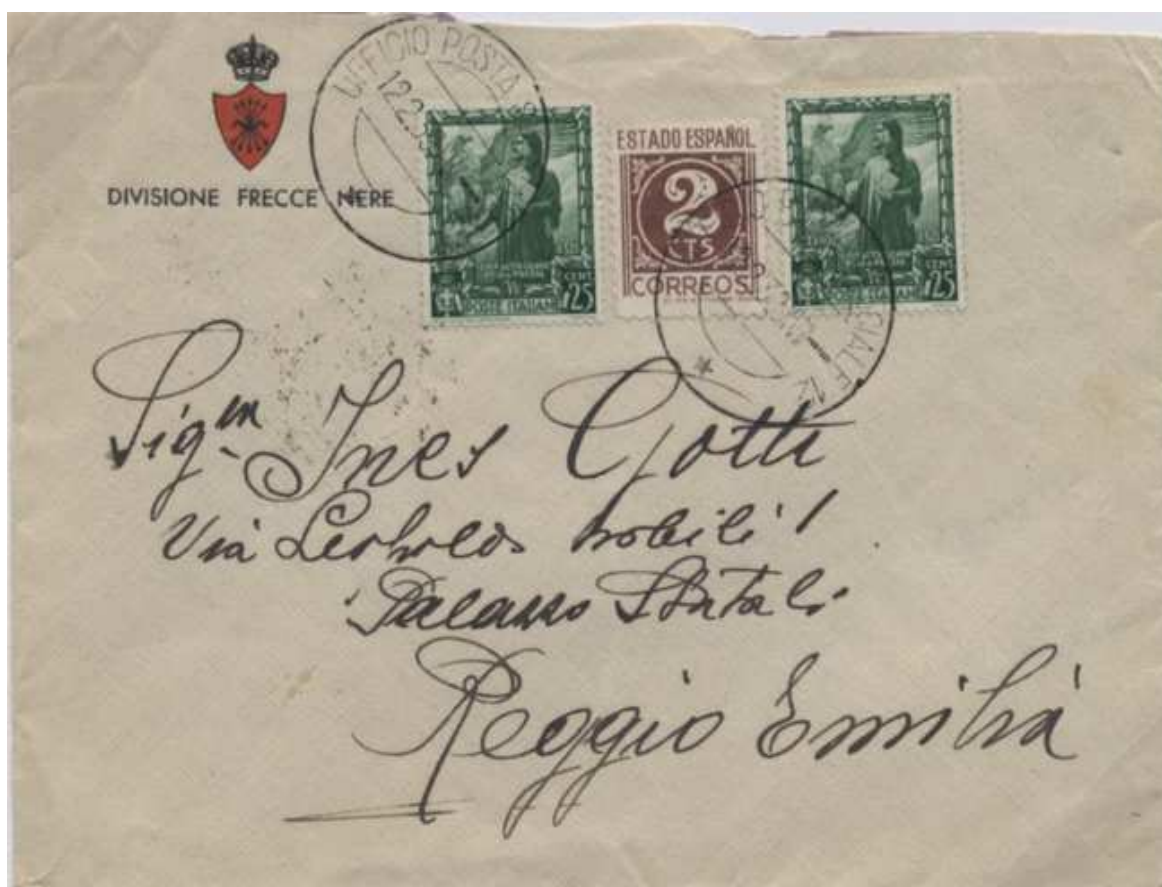 DIVISIONE FRECCE NERE
UFFICIO POSTA
12.2.3
CENT. 25
POSTE ITALIANE
ESTADO ESPAÑOL
2
CTS
CORREOS
CENT. 25
POSTE ITALIANE
Sig.na Ines Gotti
Via Leopoldo Nobili 1
Palazzo Statale
Reggio Emilia